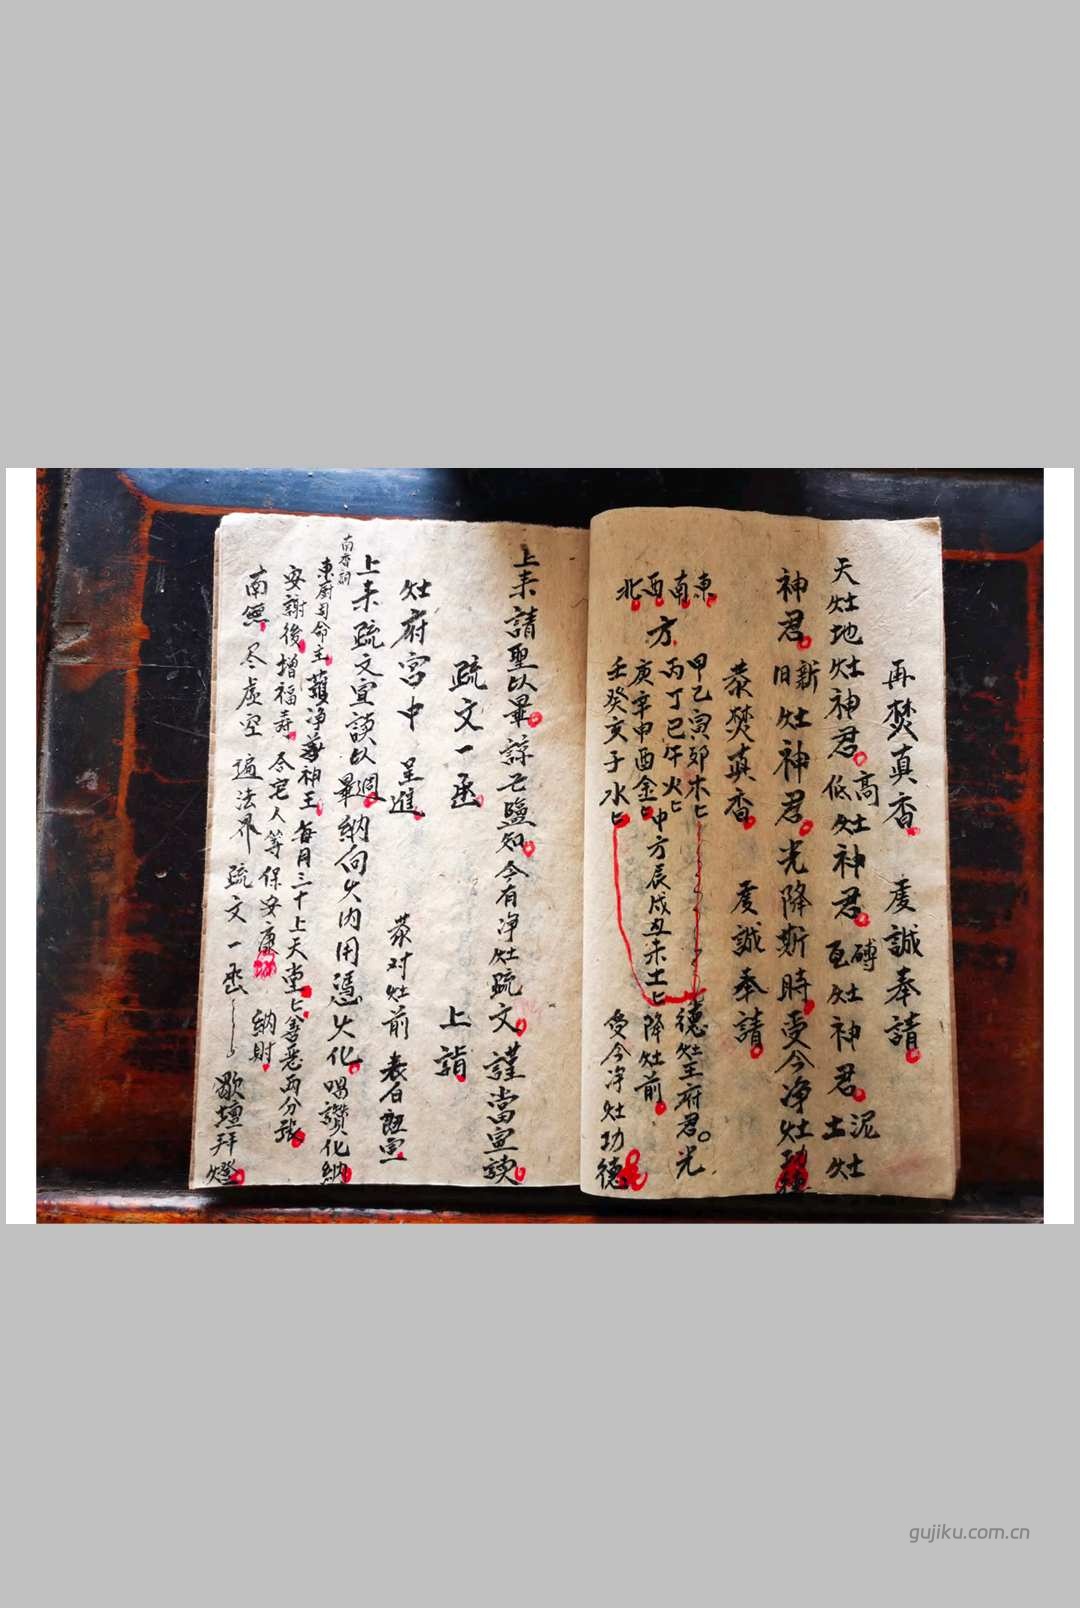 再焚真香 虔誠奉請
天灶地灶神君 高低灶神君 磚瓦灶神君 泥土灶
神君 新旧灶神君 光降斯時 受今净灶功德
恭焚真香 虔誠奉請
東南西北方
甲乙寅卯木 德灶王府君 光
丙丁巳午火
庚辛申酉金 中方辰戌丑未土 降灶前
壬癸亥子水 受今净灶功德
上来請聖以畢 諒亡鑒知 今有净灶疏文 謹當宣讀
疏文一函 上詣
灶府宮中 呈進 恭对灶前 表白宣
上来疏文宣讀以週畢 納向火内用憑火化 唱讚化納
南香詞
東厨司命主 神王 每月三十上天堂 善惡两分張
安謝後增福壽 合宅人等保安康 納財
南無 尽虚空 遍法界 疏文一函 歇壇拜燈
gujiku.com.cn